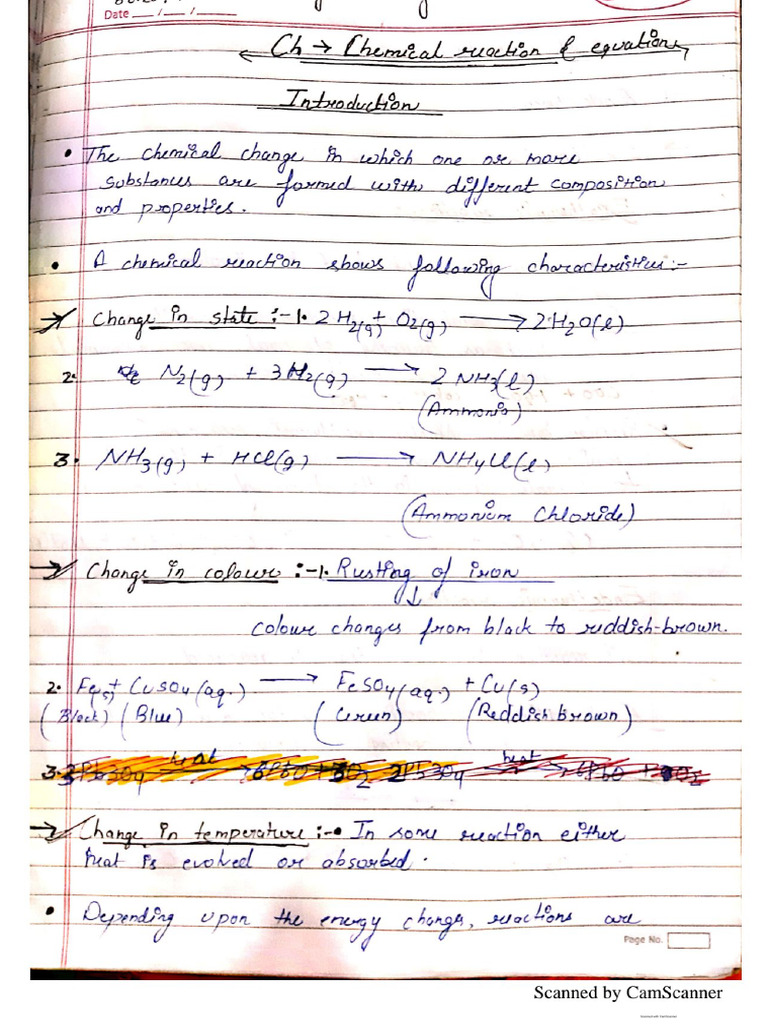 Date __/__/__
Ch → Chemical reaction & equations
Introduction
• The chemical change in which one or more
substances are formed with different composition
and properties.
• A chemical reaction shows following characteristics:-
→ Change in state :- 1. 2H2(g) + O2(g) → 2H2O(l)
2. N2(g) + 3H2(g) → 2NH3(l)
(Ammonia)
3. NH3(g) + HCl(g) → NH4Cl(l)
(Ammonium Chloride)
→ Change in colour :- 1. Rusting of iron
↓
colour changes from black to reddish-brown.
2. Fe(s) + CuSO4(aq.) → FeSO4(aq.) + Cu(s)
(Black) (Blue) (Green) (Reddish brown)
3. 2Pb3O4 heat → 6PbO + O2 2Pb3O4 heat → 6PbO + O2
→ Change in temperature :- • In some reaction either
heat is evolved or absorbed.
• Depending upon the energy change, reactions are
Page No.
Scanned by CamScanner
Scanned with CamScanner